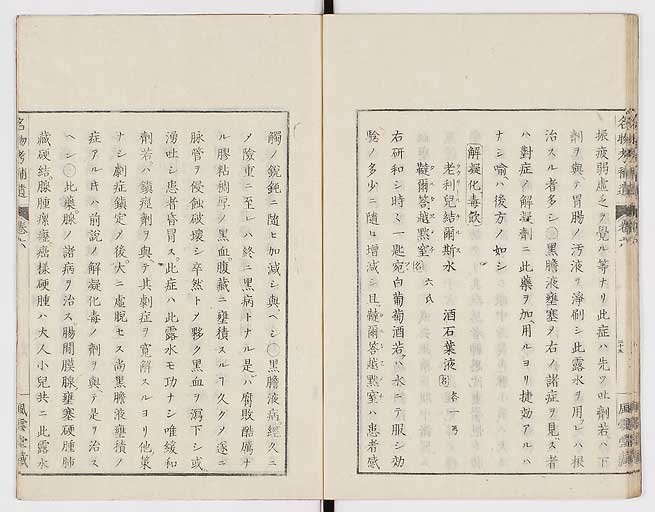 振疲弱虚乏ヲ覺ル等ナリ此症ハ先ツ吐劑若ハ下
劑ヲ與テ胃腸ノ汚液ヲ淨刷シ此露水ヲ用レハ根
治スル者多シ○黒膽液壅塞メ右ノ諸症ヲ見ス者
ハ對症ノ解凝劑ニ此藥ヲ加ヘ用ルヨリ捷効アルハ
ナシ喩ヘハ後方ノ如シ
解凝化毒飲
老利兒結爾斯水 六氏 酒石葉液 各一弓
韃爾答越黙窒
右研和シ時々一匙宛白葡萄酒若ハ水ニテ服シ効
驗ノ多少ニ隨ヒ增減シ且韃爾答越黙窒ハ患者感
觸ノ鋭鈍ニ隨ヒ加減シ與ヘシ○黒膽液病經久ニ
メ險重ニ至レハ終ニ黒病トナル是レハ腐敗酷厲ナ
ル膠粘稠厚ノ黒血腹藏ニ壅積スル久クメ遂ニ
脉管ヲ侵蝕破壊シ卒然トメ夥ク黒血ヲ瀉下シ或
湧吐シ患者昏冒ス此症ハ此露水モ功ナシ唯緩和
劑若ハ鎮痙劑ヲ與テ其劇症ヲ寛解スルヨリ他策
ナシ劇症鎮定ノ後大ニ虚脱セス尚黒膽液壅積ノ
症アル片ハ前説ノ解凝化毒ノ劑ヲ與テ是ヲ治ス
ヘシ○此藥腺ノ諸病ヲ治ス腸間膜腺壅塞硬腫肺
藏硬結腺腫瘰癧癌樣硬腫ハ大人小兒共ニ此露水
名物考補遺 卷六
風雲堂藏